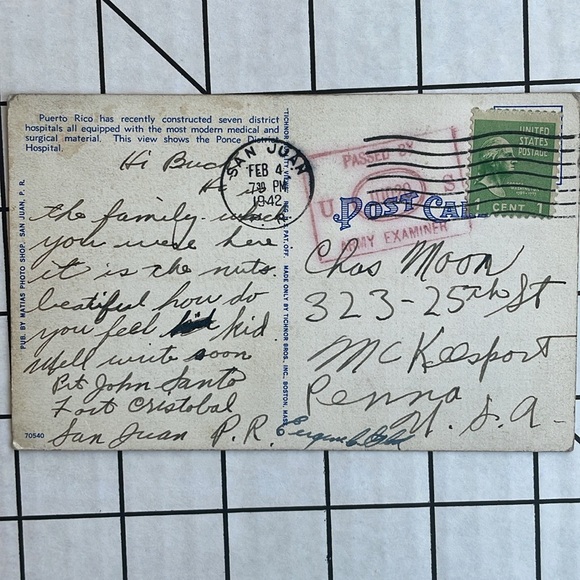 Puerto Rico has recently constructed seven district
hospitals all equipped with the most modern medical and
surgical material. This view shows the Ponce District
Hospital.
Hi
the family
you were here
it is the nuts.
beatiful how do
you feel kid
Well write soon
Pvt John Santo
Fort Cristobal
San Juan P.R.
70540
PUB. BY MATIAS PHOTO SHOP, SAN JUAN, P. R.
MADE ONLY BY TICHNOR BROS., INC., BOSTON, MASS.
SAN JUAN
FEB 4
7:30 PM
1942
P. R.
PASSED BY
U S
ARMY EXAMINER
POST CARD
UNITED
STATES
POSTAGE
1 CENT 1
Chas Moon
323-25th St
McKeesport
Penna
U.S.A-